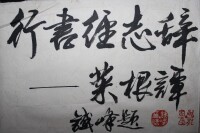 行書經志辞
——菜根譚
誠峰题